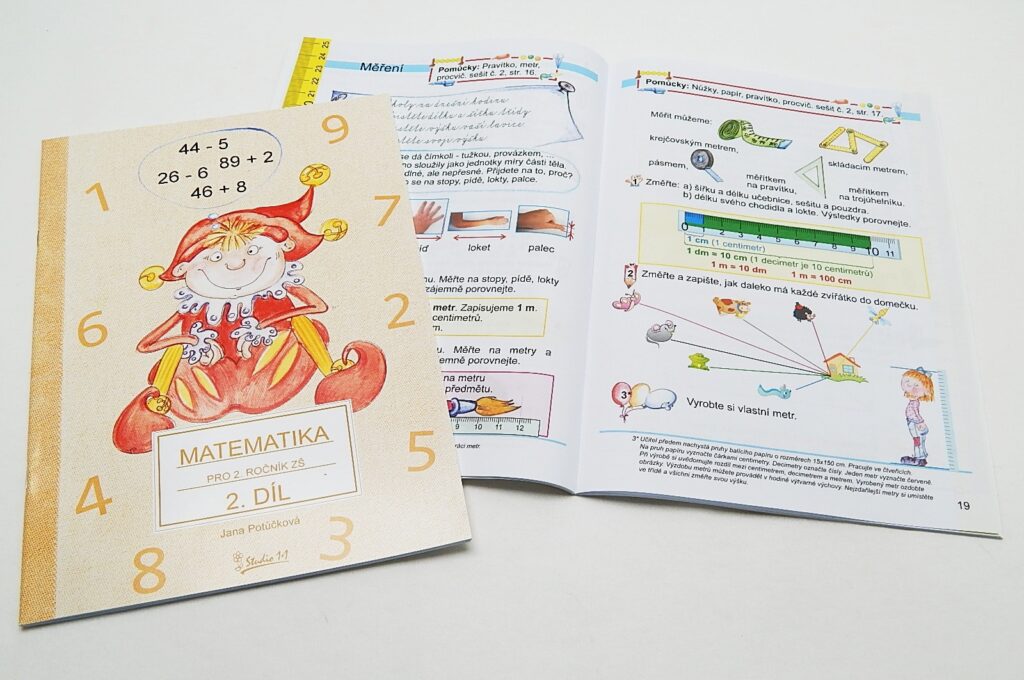 9
44 - 5
89 + 2
26 - 6
46 + 8
1
7
6
2
MATEMATIKA
PRO 2. ROČNÍK ZŠ
2. DÍL
5
4
Jana Potůčková
Studio 1+1
8
3
25
24
23
22
21
20
Měření
Pomůcky: Pravítko, metr,
procvič. sešit č. 2, str. 16.
koly na dnešní hodinu
délka a šířka třídy
výška vaší lavice
tvoje výška
se dá čímkoli - tužkou, provázkem, ...
no sloužily jako jednotky míry části těla,
dné, ale nepřesné. Přijdete na to, proč?
o se na stopy, pídě, lokty, palce.
loket
palec
u. Měřte na stopy, pídě, lokty
zájemně porovnejte.
metr. Zapisujeme 1 m.
centimetrů.
m.
u. Měřte na metry a
jemně porovnejte.
na metru
předmětu.
8 9 10 11 12
metr.
Pomůcky: Nůžky, papír, pravítko, procvič. sešit č. 2, str. 17.
Měřit můžeme:
krejčovským metrem,
skládacím metrem,
pásmem,
měřítkem
na pravítku,
měřítkem
na trojúhelníku.
1 Změřte: a) šířku a délku učebnice, sešitu a pouzdra.
b) délku svého chodidla a lokte. Výsledky porovnejte.
0 1 2 3 4 5 6 7 8 9 10 11
1 cm (1 centimetr)
1 dm = 10 cm (1 decimetr je 10 centimetrů)
1 m = 10 dm 1 m = 100 cm
2 Změřte a zapište, jak daleko má každé zvířátko do domečku.
3* Vyrobte si vlastní metr.
3* Učitel předem nachystá pruhy balicího papíru o rozměrech 15x150 cm. Pracujte ve čtveřicích.
Na pruh papíru vyznačte čárkami centimetry. Decimetry označte čísly. Jeden metr vyznačte červeně.
Při výrobě si uvědomujte rozdíl mezi centimetrem, decimetrem a metrem. Vyrobený metr ozdobte
obrázky. Výzdobu metrů můžete provádět v hodině výtvarné výchovy. Nejzdařilejší metry si umístěte
ve třídě a všichni změřte svou výšku.
19